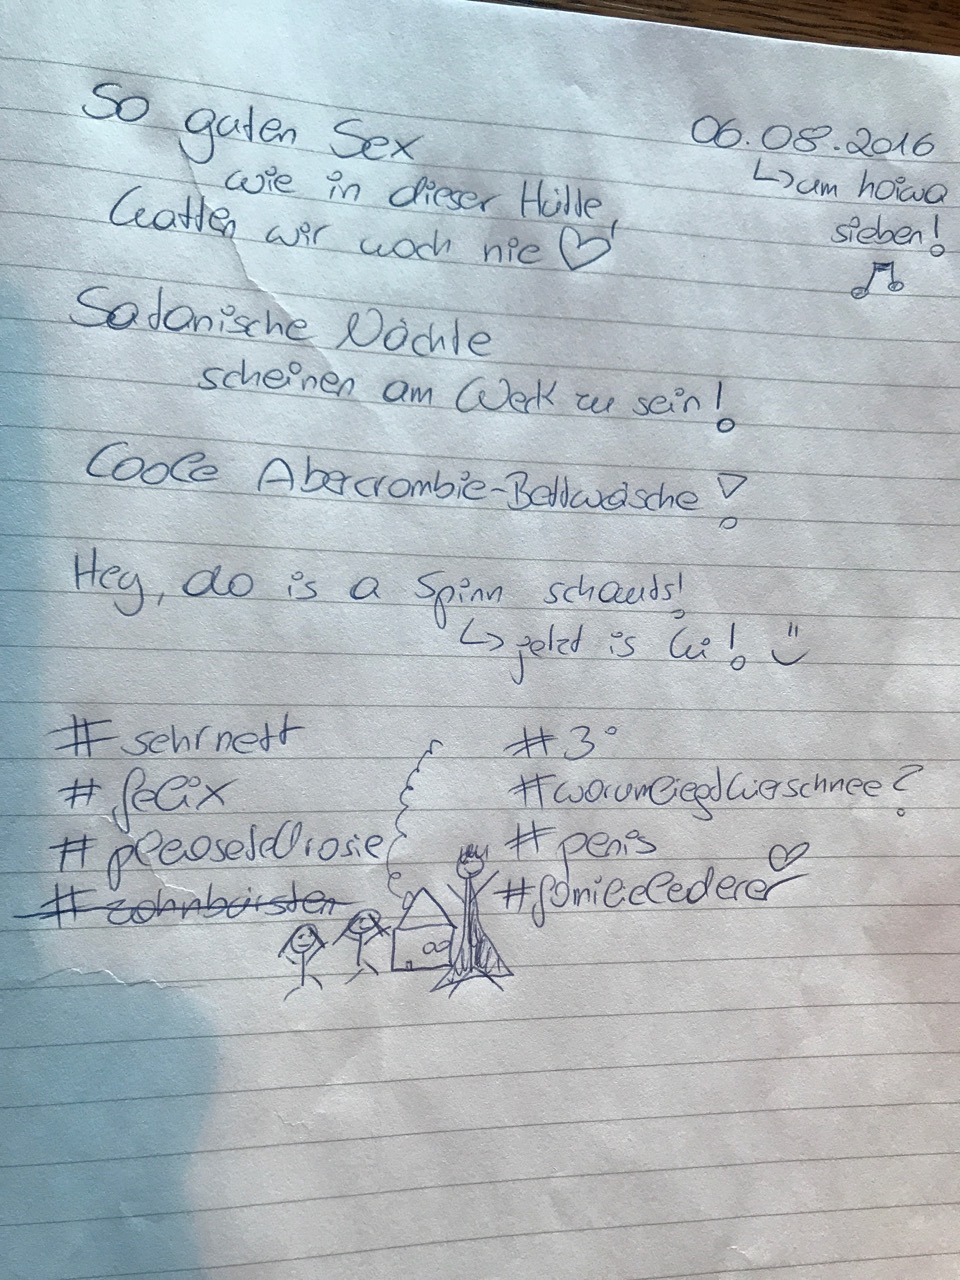 So guten Sex
wie in dieser Hütte,
hatten wir noch nie
06.08.2016
↳ um hoiwa
sieben!
Satanische Mächte
scheinen am Werk zu sein!
Coole Abercrombie-Bettwäsche!
Hey, do is a Spinn schauds!
↳ jetzt is hi!
#sehrnett
#felix
#zahnbürsten
#3°
#warumliegthierschnee?
#penis